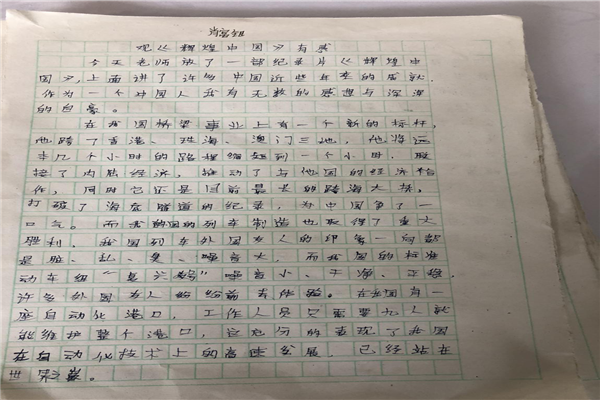 肖富钽
观《辉煌中国》有感
今天老师放了一部纪录片《辉煌中
国》，上面讲了许多中国近些年来的成就，
作为一个中国人我有无数的感想与深深
的自豪。
在我国桥梁事业上有一个新的标杆，
他跨了香港、珠海、澳门三地，他将远
来几个小时的路程缩短到一个小时，联
接了内陆经济，推动了与他国的经济合
作，同时它还是目前最长的跨海大桥，
打破了海底隧道的纪录，为中国争了一
口气。而我的国的列车制造也取得了重大
胜利，我国列车外国友人的印象一向都
是脏、乱、臭、噪音大，而我国的标准
动车组“复兴號”噪音小、干净、正稳，
许多外国友人都纷前来体验。在我国有一
座自动化港口，工作人员只需要九人就
能维护整个港口，这充分的表现了我国
在自动化技术上的高速发展，已经站在
世界之巅。